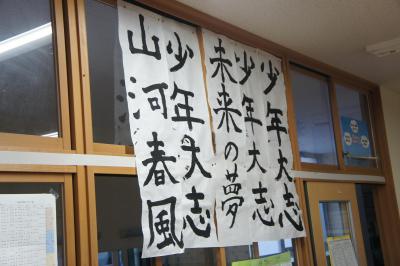 少年大志
少年大志
未来の夢
少年大志
山河春風